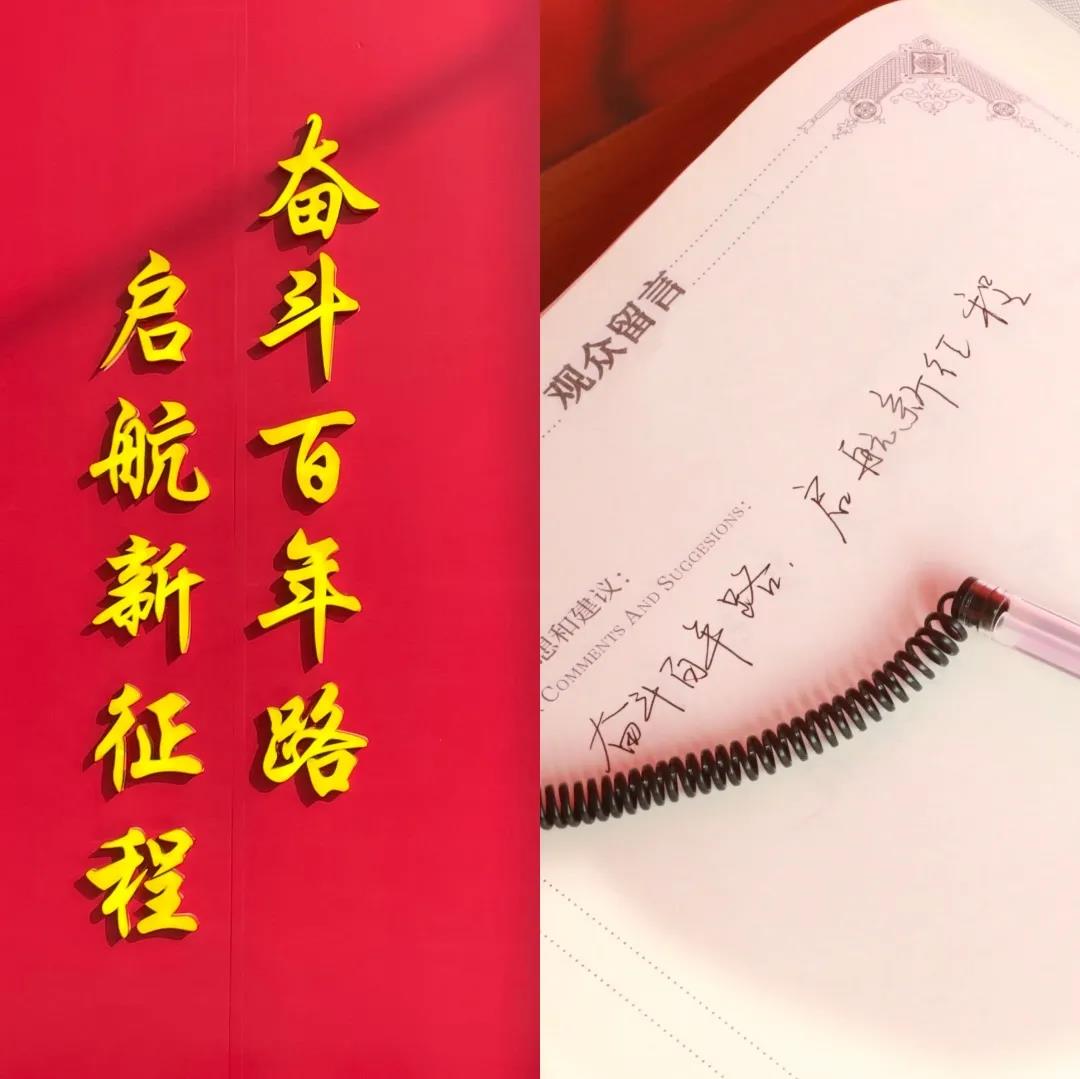 奋斗百年路
启航新征程
观众留言
想和建议:
COMMENTS AND SUGGESIONS:
奋斗百年路.启航新征程